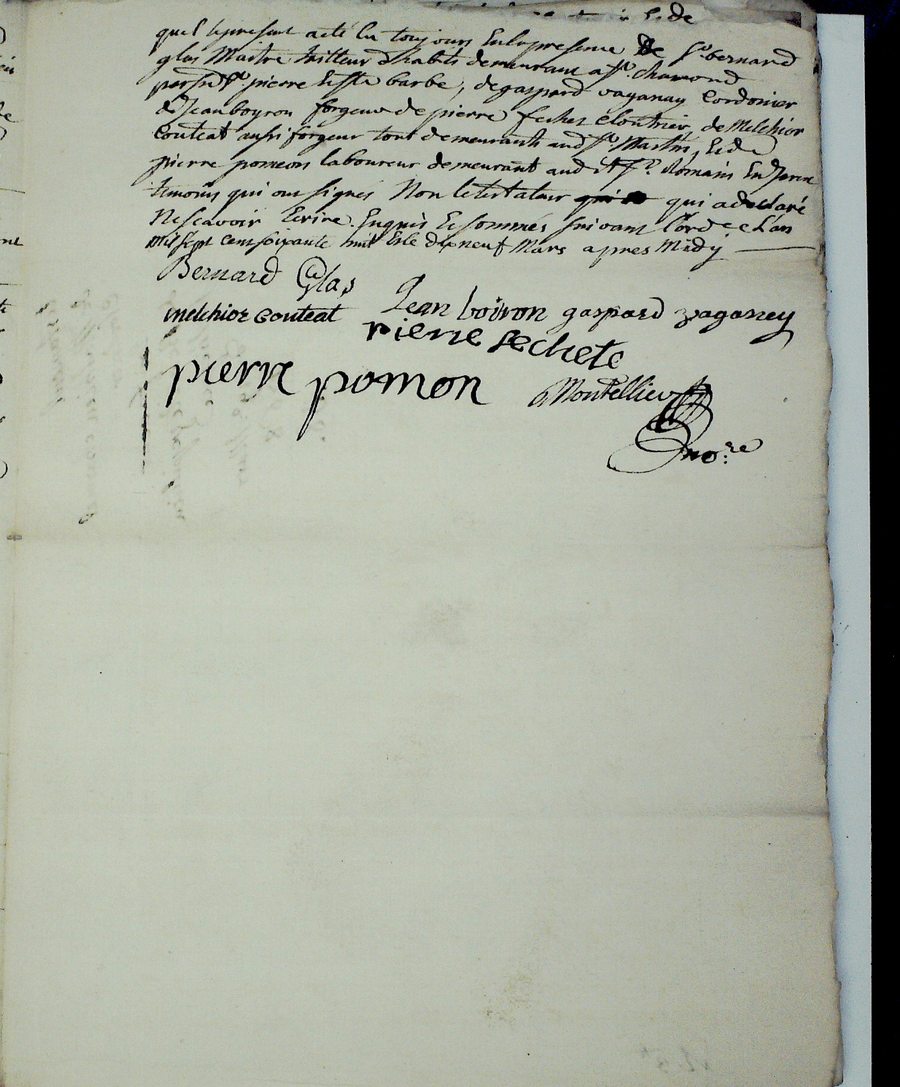 quel le present acte lu toujours En la presence De Sr. bernard
glas Maitre tailleur d'habits demeurant a St. chamond
pierre et ste barbe, de gaspard vaganay Cordonier
de Jean boyron forgeur de pierre sechet Cloutrier, de Melchior
Couteat aussi forgeur tous demeurants aud St. Martin, Et de
pierre pomeons laboureur demeurant aud St. Romain En Jarez
temoins qui ont signés Non le testateur qui a declaré
Ne scavoir Ecrire Enquis Et sommés suivant l'ord ce L'an
mil sept cens soixante huit Et le dix neuf Mars apres Midy
Bernard Glas
melchior couteat Jean boiron gaspard vaganey
pierre sechete
pierre pomon Montellier
no:re